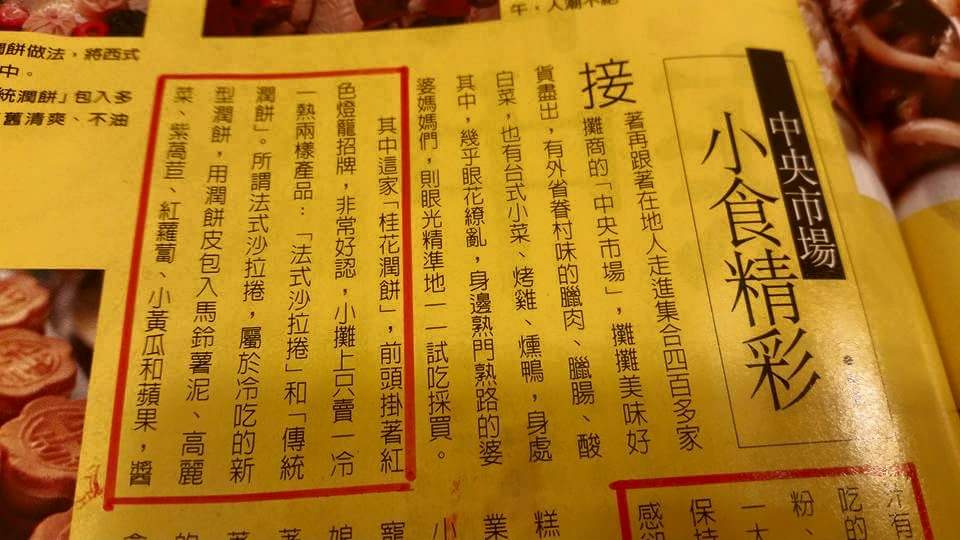 午，人潮不絕
中央市場
小食精彩
接
著再跟著在地人走進集合四百多家
攤商的「中央市場」，攤攤美味好
貨盡出，有外省眷村味的臘肉、臘腸、酸
白菜，也有台式小菜、烤雞、燻鴨，身處
其中，幾乎眼花繚亂，身邊熟門熟路的婆
婆媽媽們，則眼光精準地一一試吃採買。
其中這家「桂花潤餅」，前頭掛著紅
色燈籠招牌，非常好認，小攤上只賣一冷
一熱兩樣產品：「法式沙拉捲」和「傳統
潤餅」。所謂法式沙拉捲，屬於冷吃的新
型潤餅，用潤餅皮包入馬鈴薯泥、高麗
菜、紫萵苣、紅蘿蔔、小黃瓜和蘋果，醬
潤餅做法，將西式
中。
統潤餅」包入多
舊清爽、不油
有
吃的
粉、
一大
保持
感卻
糕
業
小
寵
娘